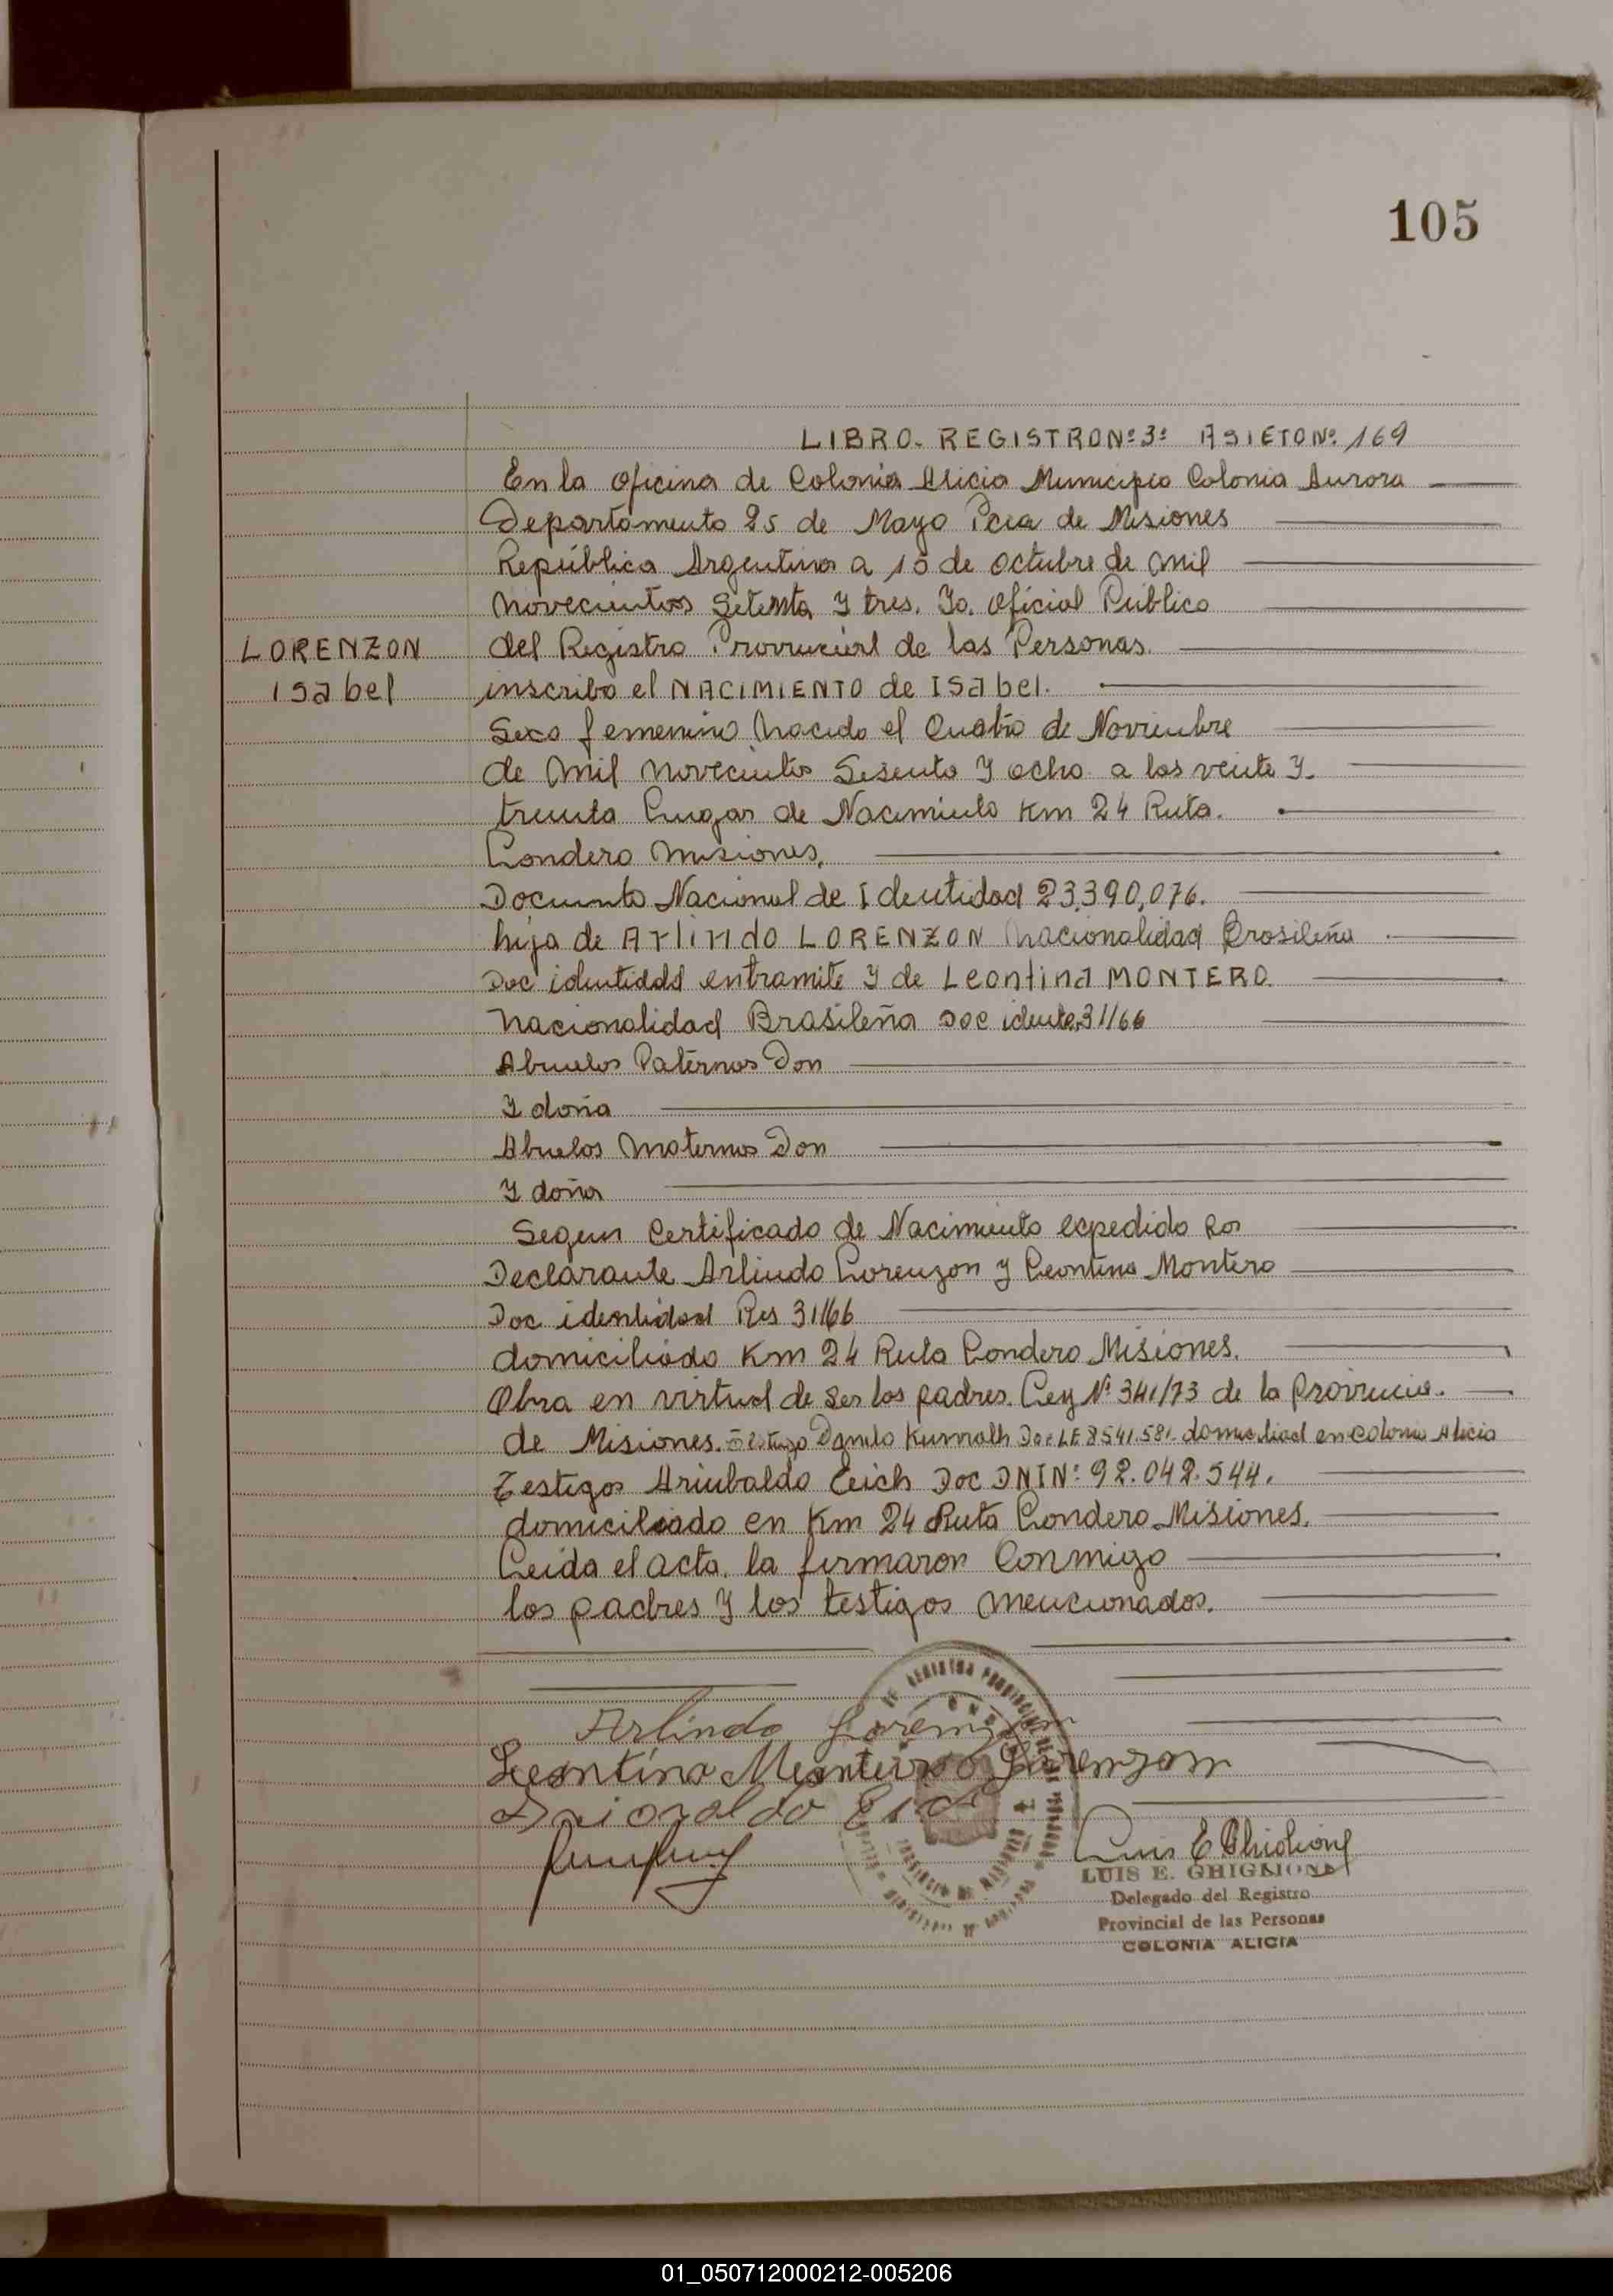 105
LIBRO. REGISTRO Nº 3º ASIETO Nº 169
En la oficina de Colonia Alicia Municipio Colonia Aurora
Departamento 25 de Mayo Pcia de Misiones
República Argentina a 15 de octubre de mil
novecientos setenta y tres. Yo. oficial Público
LORENZON del Registro Provincial de las Personas.
Isabel inscribo el NACIMIENTO de ISabel.
Sexo femenino nacido el cuatro de Noviembre
de mil novecientos sesenta y ocho a las veinte y.
treinta Lugar de Nacimiento Km 24 Ruta.
Londero Misiones.
Documento Nacional de Identidad 23,390,076.
hija de Arlindo LORENZON nacionalidad Brasileña
Doc identidad entramite y de Leontina MONTERO.
nacionalidad Brasileña Doc 31166
Abuelos Paternos Don
Y doña
Abuelos Maternos Don
Y doña
Segun Certificado de Nacimiento expedido Por
Declarante Arlindo Lorenzon y Leontina Montero
Doc identidad Res 31166
domiciliado Km 24 Ruta Londero Misiones.
Obra en virtud de ser los padres. Ley Nº 341/73 de la Provincia.
de Misiones. Testigo Danilo Doc LE 8541.581. domiciliad en Colonia Alicia
Testigos Eich Doc DNI Nº: 92.042.544.
domiciliado en Km 24 Ruta Londero Misiones.
Leida el acta, la firmaron Conmigo
los padres y los testigos mencionados.
Arlindo Lorenzon
Leontina Monteiro Lorenzon
Luis E Ghiglione
LUIS E. GHIGLIONE
Delegado del Registro
Provincial de las Personas
COLONIA ALICIA
01_050712000212-005206